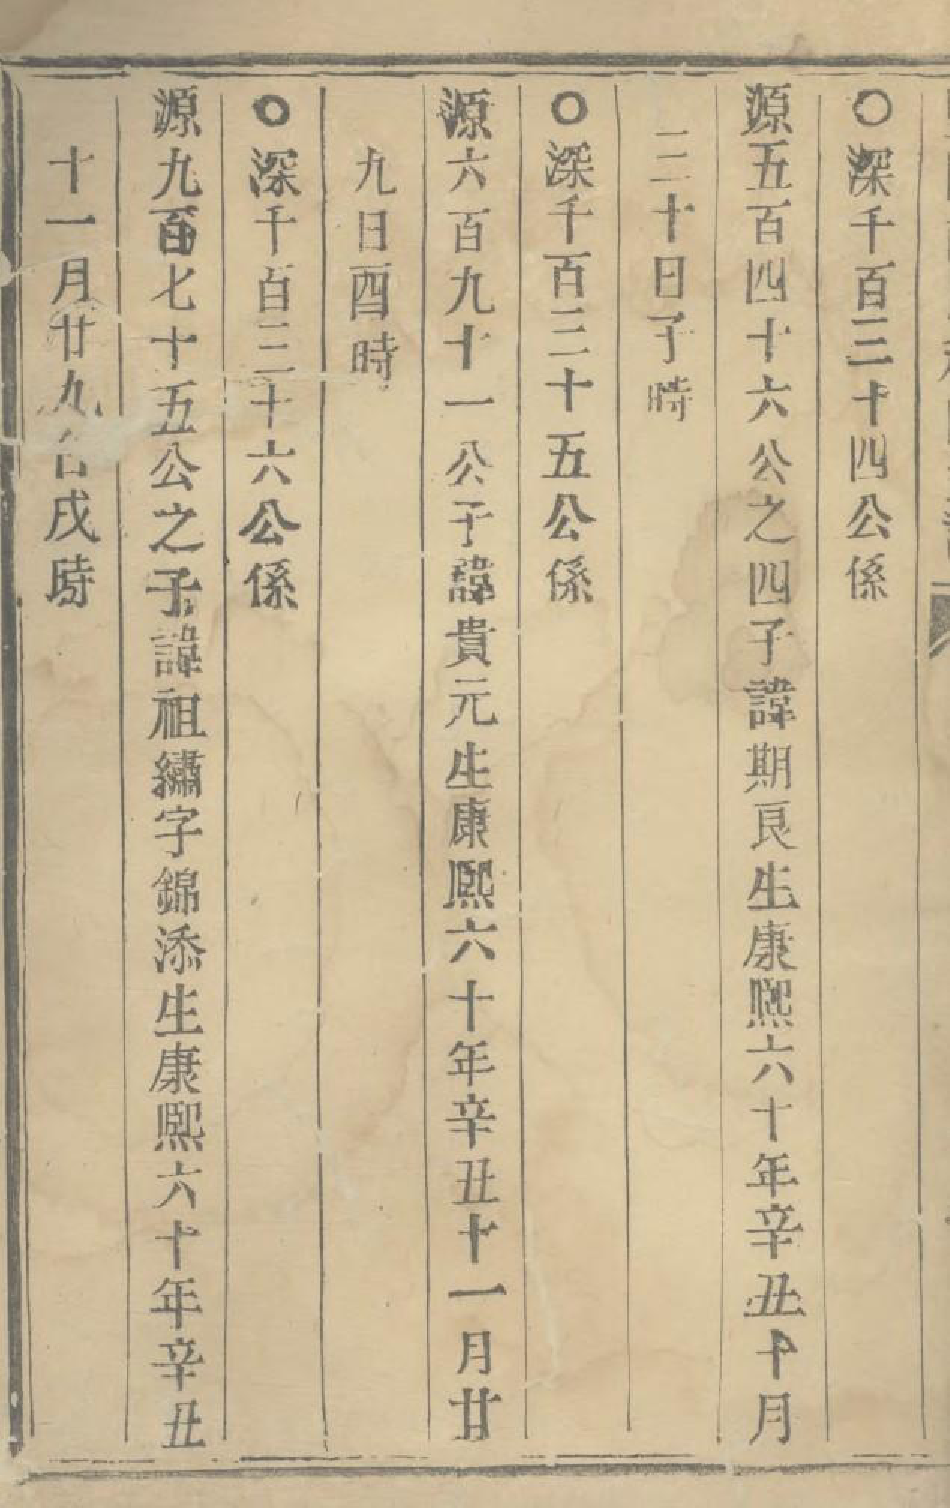 ○深千百三十四公係
源五百四十六公之四子諱期良生康熙六十年辛丑十月
二十日子時
○深千百三十五公係
源六百九十一公子諱貴元生康熙六十年辛丑十一月廿
九日酉時
○深千百三十六公係
源九百七十五公之子諱祖繡字錦添生康熙六十年辛丑
十一月廿九日戌時